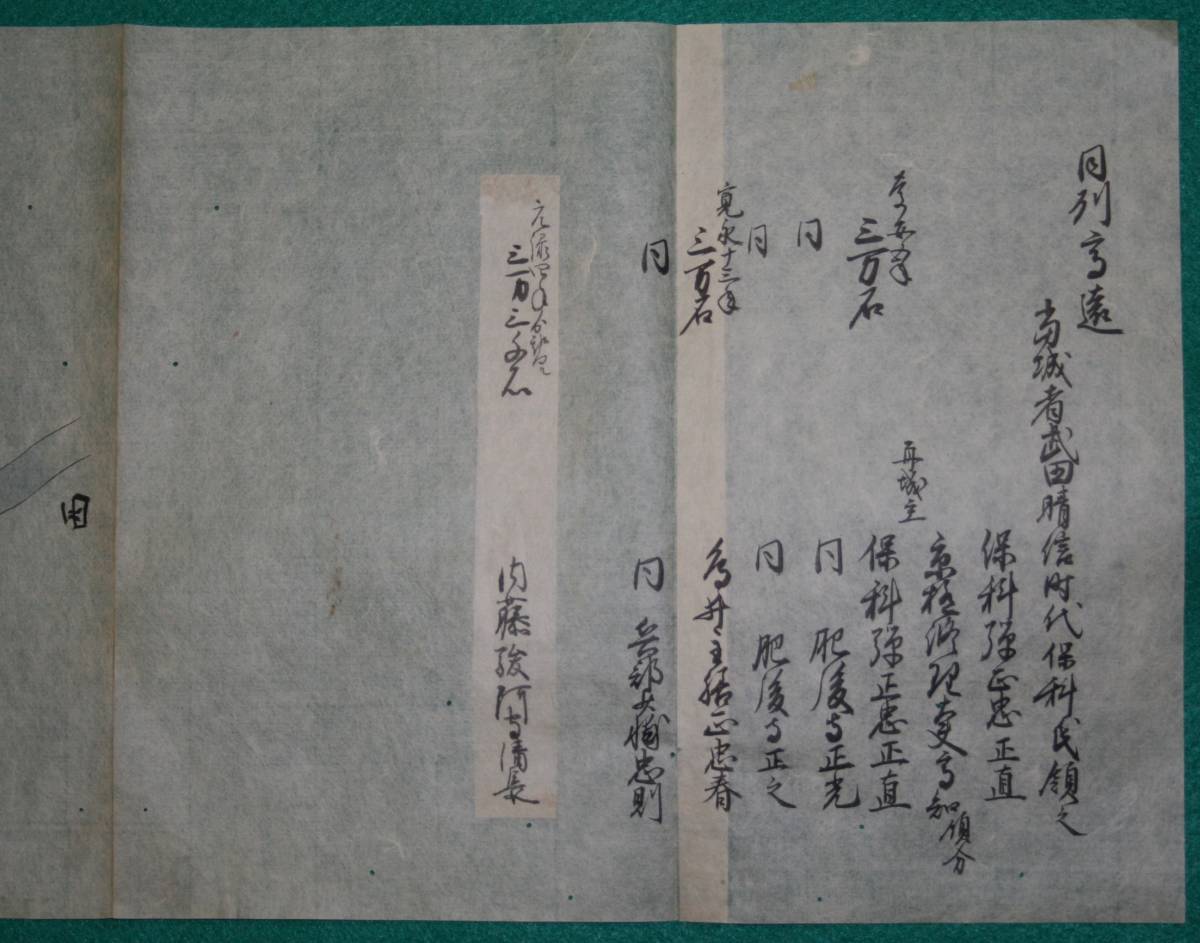 同州高遠
当城者武田晴信時代保科氏領之
保科弾正忠正直
京極修理大夫高知領分
再城主
三万石
保科弾正忠正直
同 同 肥後守正光
同 同 肥後守正之
寛永十三年
三万石 鳥井主膳正忠春
同 同 兵部少輔忠則
元禄四年
三万三千石
内藤駿河守清長